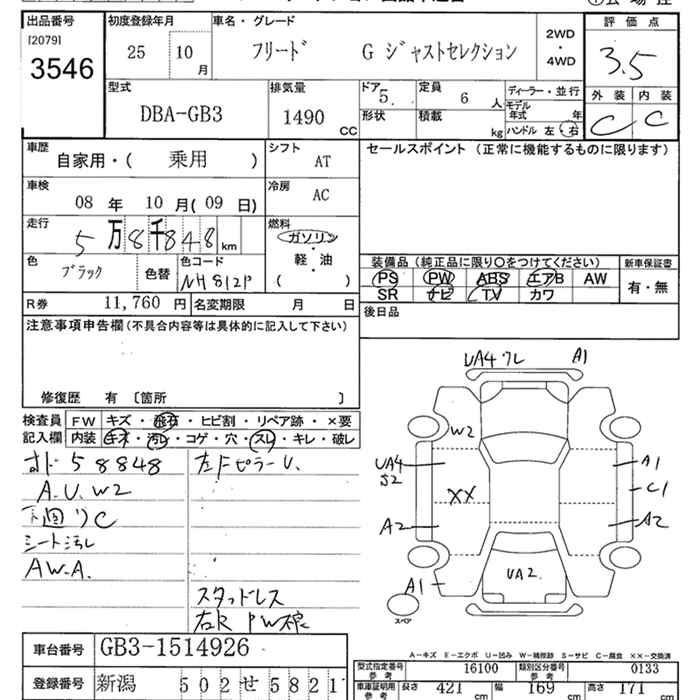 出品番号 初度登録年月 車名・グレード 評価点
[2079]
3546 25 10月 フリード G ジャストセレクション 2WD・4WD 3.5
型式 排気量 ドア 定員 ディーラー・並行 外装 内装
DBA-GB3 1490 CC 5 6 人 モデル年式 年 C C
形状 積載 kg ハンドル 左・右
車歴 自家用・( 乗用 ) シフト AT セールスポイント(正常に機能するものに限ります)
車検 08 年 10 月( 09 日) 冷房 AC
走行 5万8千848km 燃料 ガソリン・軽・油 ( )
装備品(純正品に限り○をつけてください) 新車保証書
色 ブラック 色替 色コード NH812P PS PW ABS エアB AW 有・無
SR ナビ TV カワ
R券 11,760 円 名変期限 月 日 後日品
注意事項申告欄(不具合内容等は具体的に記入して下さい)
修復歴 有 〔箇所 〕
検査員記入欄 FW キズ・飛石・ヒビ割・リペア跡・×要
内装 キズ・汚レ・コゲ・穴・スレ・キレ・破レ
58848 左FピラーU.
A.U.W2
下廻りC
シート汚レ
AW.A.
スタッドレス
右R PW不良
UA4 ワレ A1
W2
UA4 S2 A1
XX C1
A2 A2
UA2
A1
スペア
A-キズ E-エクボ U-凹み W-補修跡 S-サビ C-腐食 XX-交換済
車台番号 GB3-1514926
型式指定番号 参考 16100 類別区分番号 参考 0133
登録番号 新潟 502 せ 5821
車庫証明用 参考 長さ 421 cm 幅 169 cm 高さ 171 cm